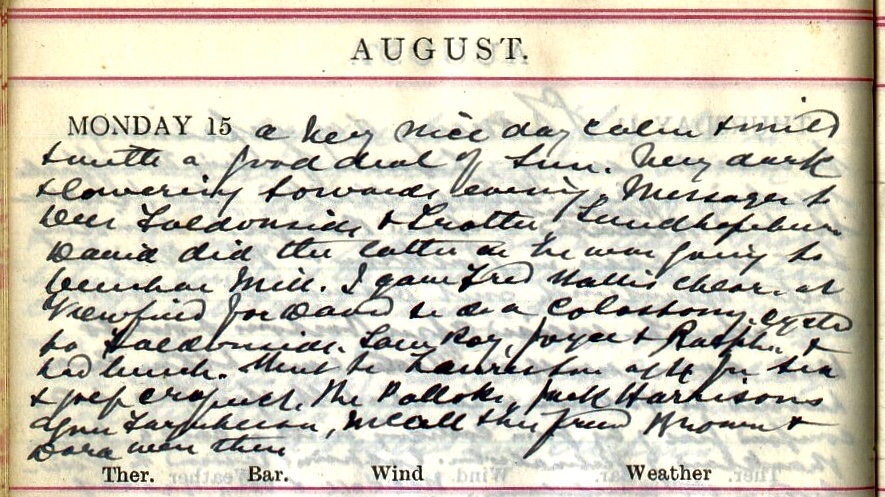 AUGUST.
MONDAY 15 a very nice day calm & mild
& with a good deal of sun. Very dark
& lowering towards evening. Messages to
see Faldonside & Trotter,
David did the latter as he was going to
Mill. I gave Fred Wallis chlor. at
Viewfield for David to do a Colostomy. Cycled
to Faldonside. Saw Roy, Joyce & Ralph &
had lunch. Went to aft for tea
& croquet. The Polloks, Jack Harrisons
Farquharson, McCall & his friend Brown &
Dora were there
Ther. Bar. Wind Weather